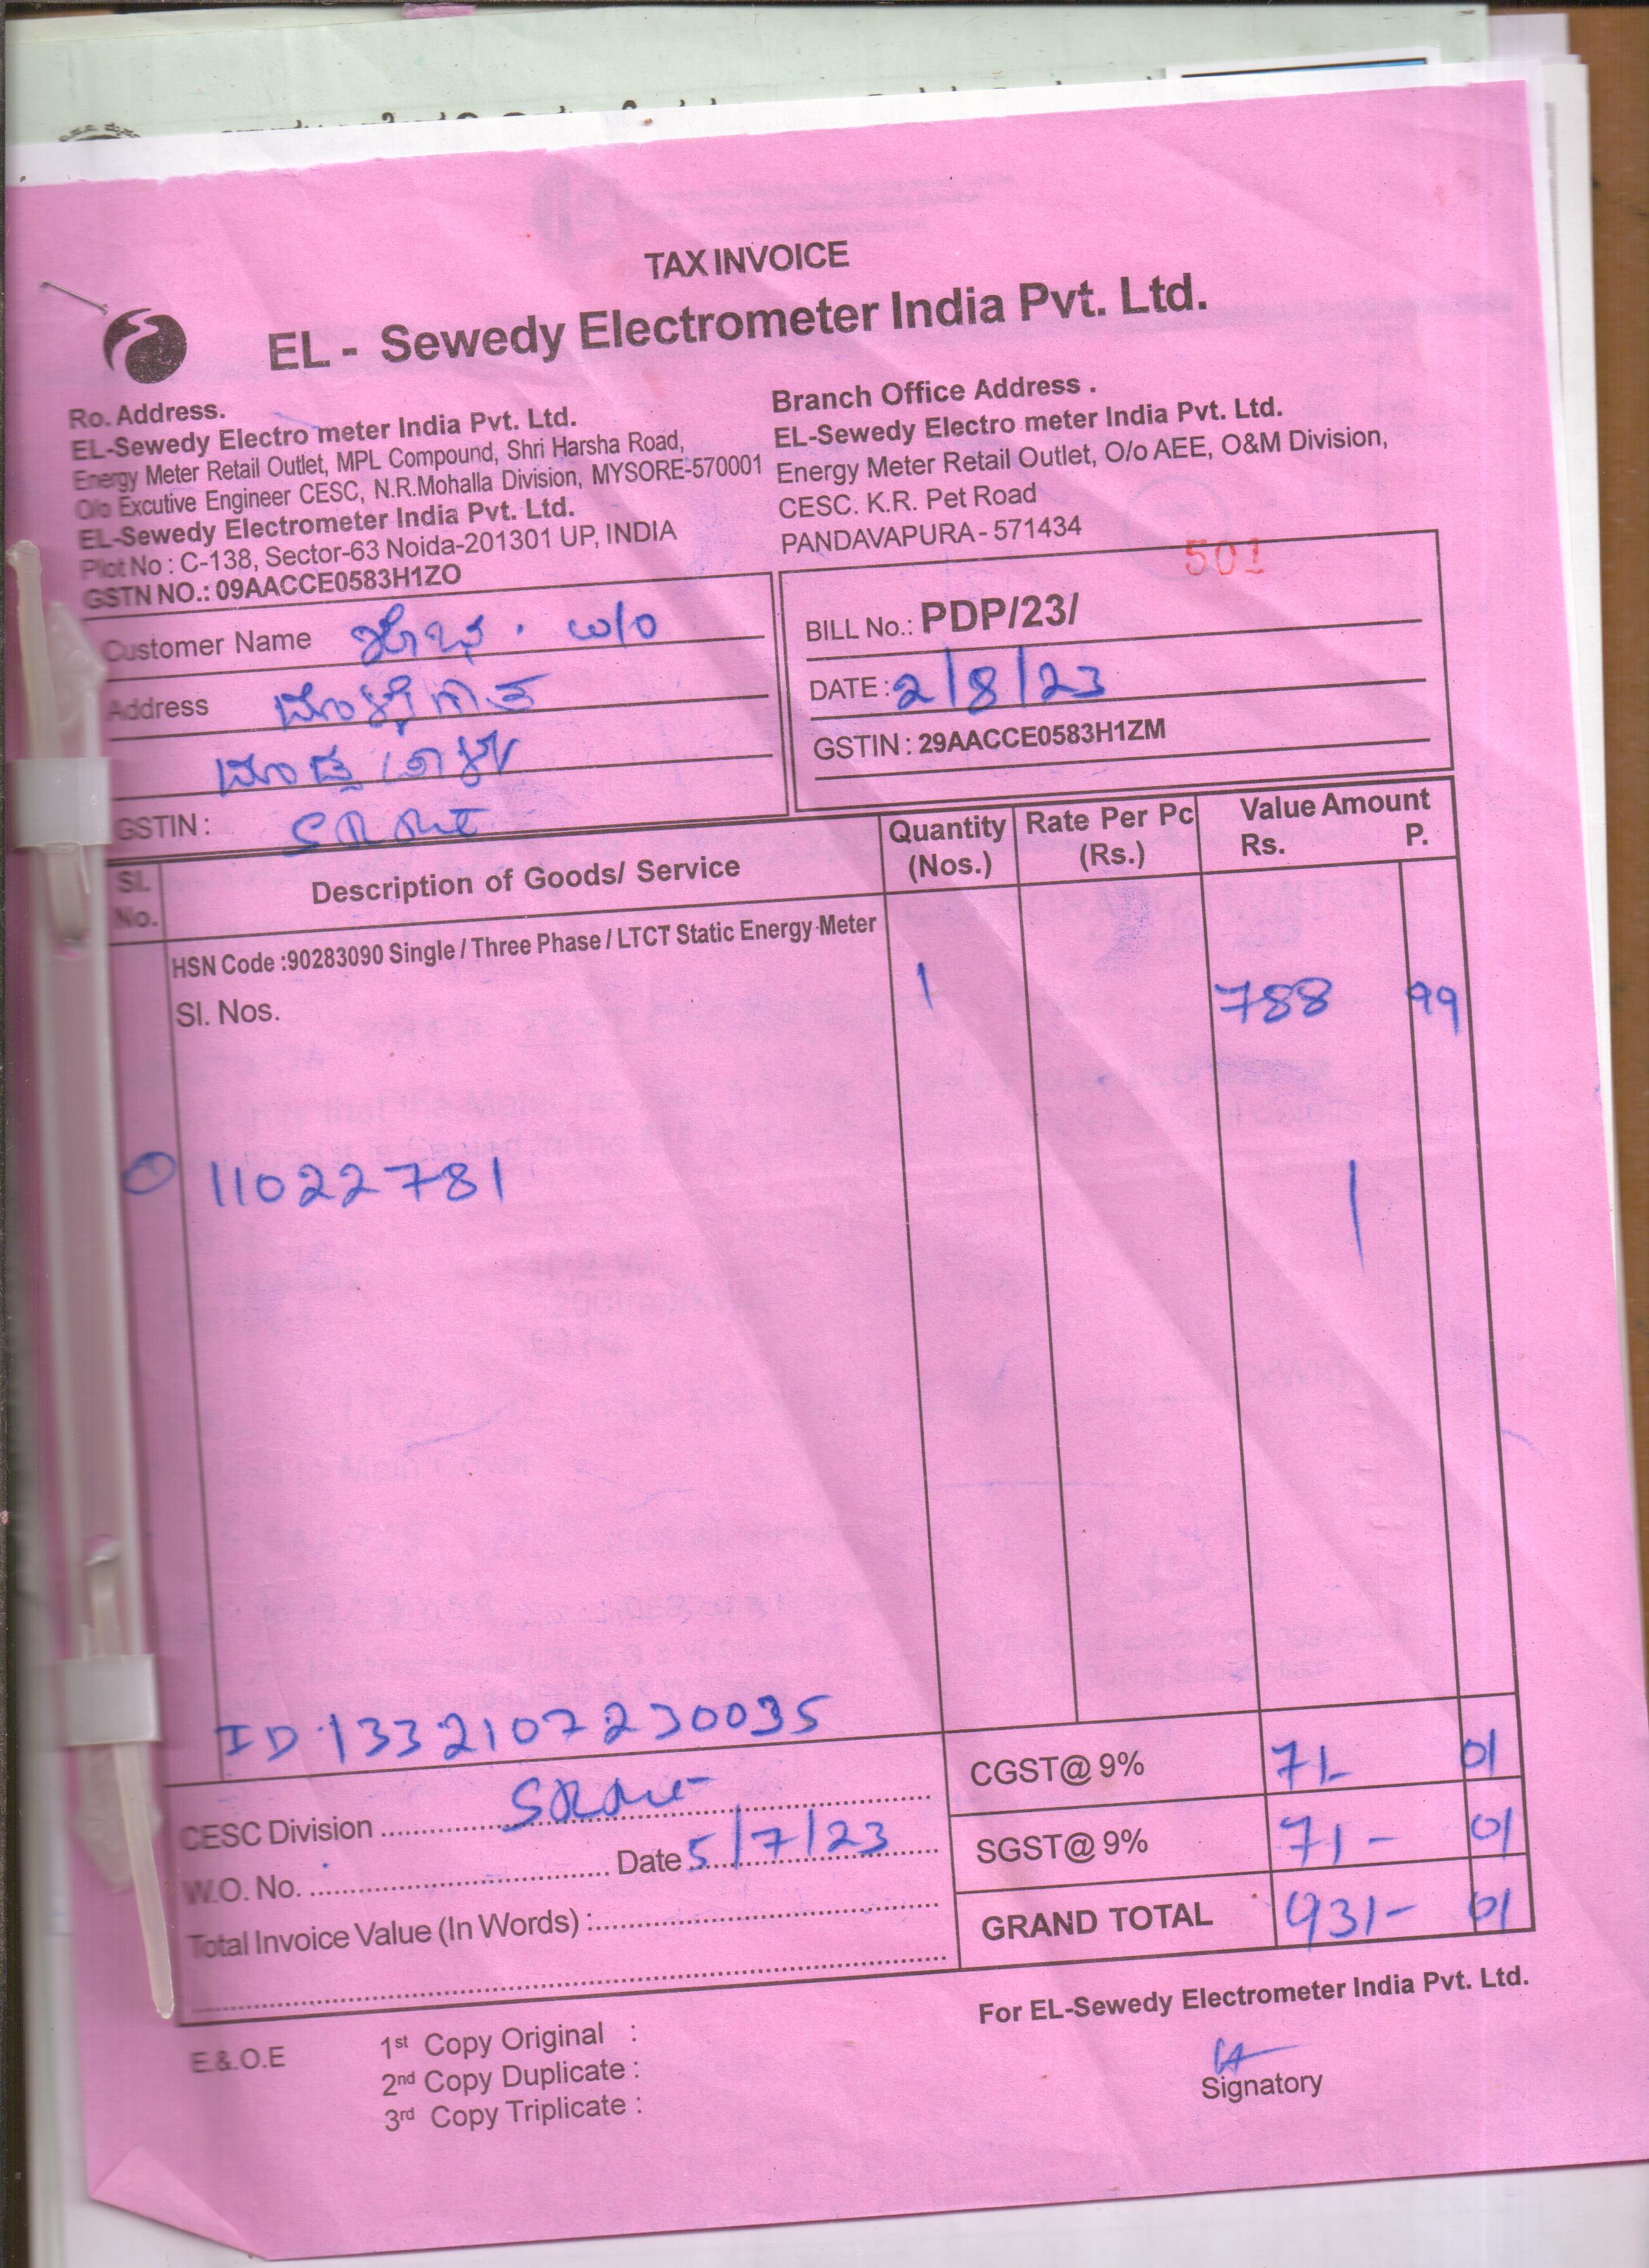 TAX INVOICE
EL - Sewedy Electrometer India Pvt. Ltd.
Ro. Address.
EL-Sewedy Electro meter India Pvt. Ltd.
Energy Meter Retail Outlet, MPL Compound, Shri Harsha Road,
O/o Excutive Engineer CESC, N.R.Mohalla Division, MYSORE-570001
EL-Sewedy Electrometer India Pvt. Ltd.
Plot No : C-138, Sector-63 Noida-201301 UP, INDIA
GSTN NO.: 09AACCE0583H1ZO
Branch Office Address .
EL-Sewedy Electro meter India Pvt. Ltd.
Energy Meter Retail Outlet, O/o AEE, O&M Division,
CESC. K.R. Pet Road
PANDAVAPURA - 571434
Customer Name w/o
Address
GSTIN :
501
BILL No.: PDP/23/
DATE : 2/8/23
GSTIN : 29AACCE0583H1ZM
Sl. No. Description of Goods/ Service Quantity (Nos.) Rate Per Pc (Rs.) Value Amount Rs. P.
HSN Code :90283090 Single / Three Phase / LTCT Static Energy Meter
Sl. Nos. 1 788 99
11022781
ID 1332107230035
CGST@ 9% 71- 01
CESC Division
SGST@ 9% 71- 01
W.O. No. Date 5/7/23
GRAND TOTAL 931- 01
Total Invoice Value (In Words) :
For EL-Sewedy Electrometer India Pvt. Ltd.
E.&.O.E
1st Copy Original :
2nd Copy Duplicate :
3rd Copy Triplicate :
Signatory